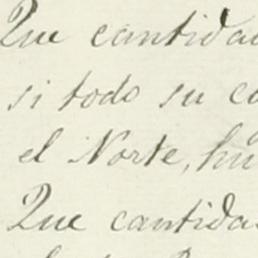 Que cantidad
si todo su
el Norte,
Que cantida